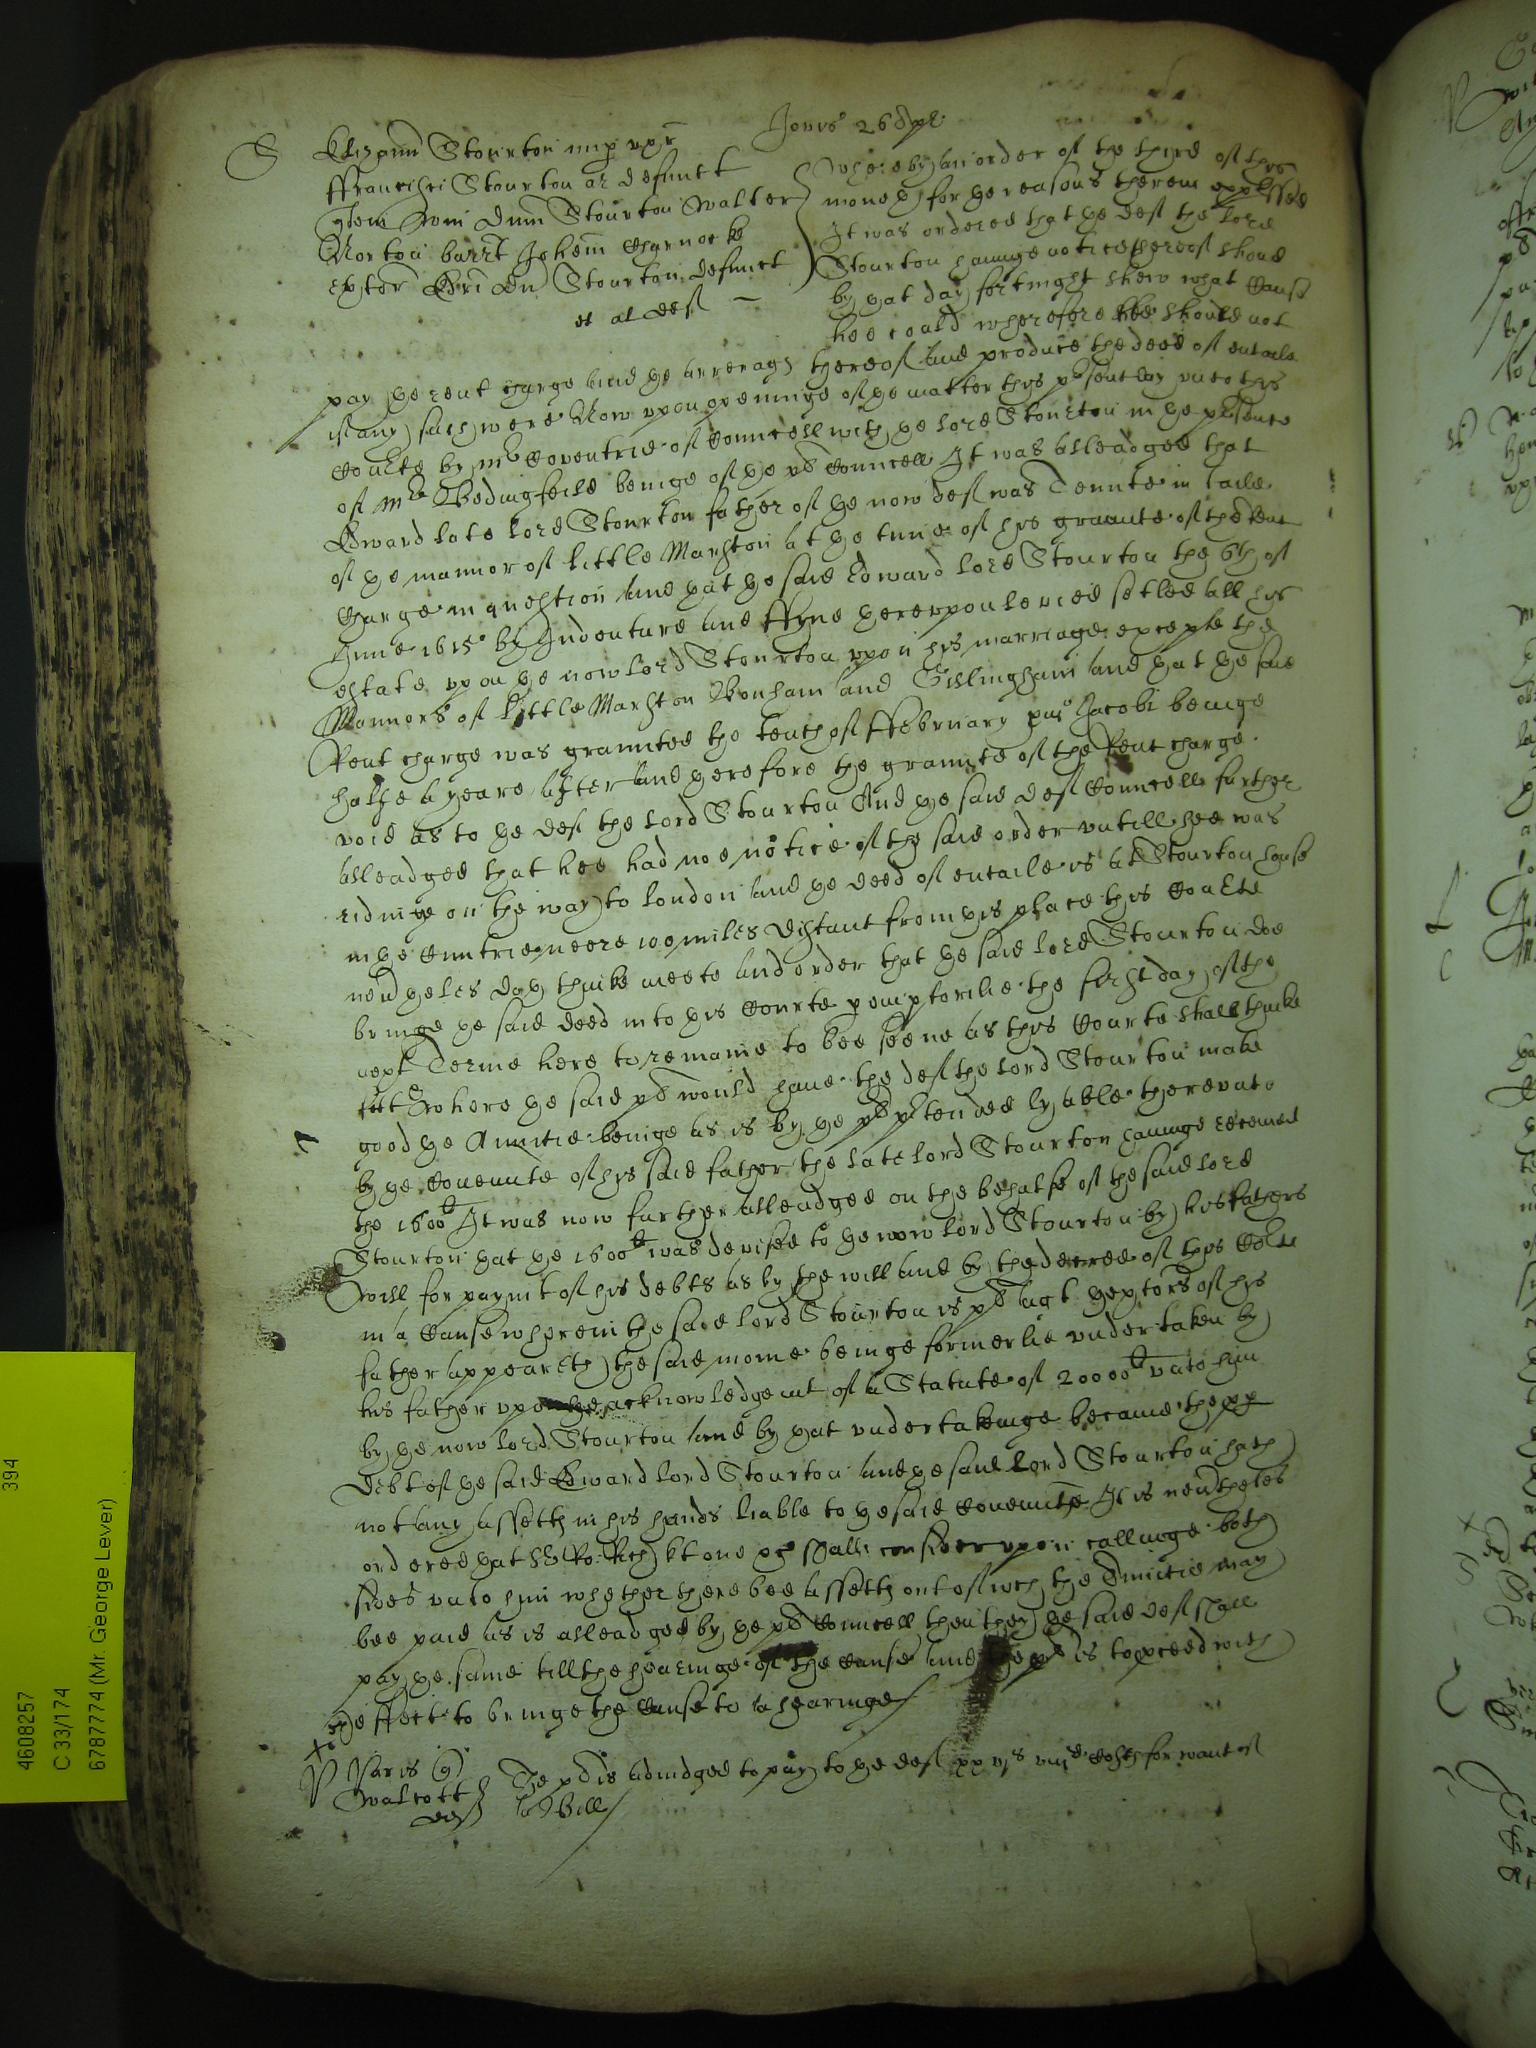 Jovis 26 Apr
S
Elizam Stourton nup uxr
ffrancisci Stourton ar defunct
Quer Willm Dnm Stourton Walter
Norton barrt Johem Charnocke
extor Edri Dn Stourton defunct
et al def
Whereby an order of the third of this
moneth for ye reasons therein expressed
It was ordered that ye def the lord
Stourton haveinge notice thereof should
by yat day fortnight shew what cause
hee could wherefore hee should not
pay ye rent charge and ye arrerages thereof and produce the deed of entaile
if any such were Now upon openinge of ye matter this present day unto this
Courte by Mr Coventrie of Councell with ye lord Stourton in ye presence
of Mr Bedingfeild beinge of ye pl Councell It was alleadged that
Edward late lord Stourton father of ye now def was Tennte in taile
of ye mannor of little Marston at ye time of his graunte of the Rent
Charge in question and yat ye said Edward lord Stourton the 6th of
June 1615 by Indenture and ffyne yereupon levied setled all his
estate upon ye now lord Stourton upon his marriage except the
Mannors of little Marston Bonham and Gillingham and yat ye said
Rent charge was graunted the tenth of ffebruary Jacobi beinge
halfe a yeare after and yerefore the graunte of the Rent charge
void as to ye def the lord Stourton And ye said def Councell further
alleadged that hee had noe notice of the said order untill hee was
ridinge on the way to london and ye deed of entaile is at Stourton house
in ye Cuntrie neere 100 miles distant from this place this Courte
nevyeles doth thinke meete and order that ye said lord Stourton doe
bringe ye said deed into this Courte pemptorilie the first day of the
next Terme here to remaine to bee seene as this Courte shall thinke
fitt Where ye said pl would have the def the lord Stourton make
good ye Anuitie beinge as is by ye pl ptended lyable thereunto
by ye Covennte of his said father the late lord Stourton haveinge received
the 1600li It was now further alleadged on the behalfe of the said lord
Stourton yat ye 1600li was devised to ye now lord Stourton by his fathers
will for paymt of his debts as by the will and by the decree of this Corte
in a Cause wherein the said lord Stourton is pl agt yextors of his
father appeareth the said monie beinge formerlie undertaken by
his father upon the acknowledgemt of a Statute of 20000li unto him
by ye now lord Stourton and by yat undertakeinge became the pp
debt of ye said Edward lord Stourton and ye said lord Stourton hath
not any assetts in his hands liable to ye said Covennte It is nevtheles
ordered yat Sr Ro: Rich kt one shall consider upon callinge both
sides unto him whether there bee assetts out of wch the Annuitie may
bee paid as is alleadged by ye pl Councell then they ye said def shall
pay ye same till the hearinge of the Cause and the pl is to pceed with
effect to bringe the Cause to a hearinge
Walcott
def
The pl is adiudged to pay to ye def xxvjs viijd Costs for want of
a bill
4608257 394
C 33/174
6787774 (Mr. George Lever)